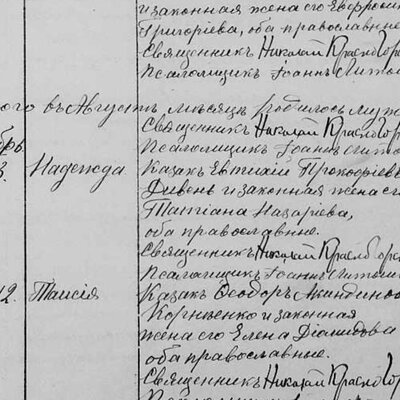 и законная жена его Евфросин
Григоріева, оба православные
Священникъ Николай Красногор
Псаломщикъ Іоаннъ Лито
ого въ Августѣ мѣсяцѣ родилось муж
Священникъ Николай Красногор
брь
Псаломщикъ Іоаннъ Лито
3. Надежда Казакъ Евтихій Прокофіевъ
Дивень и законная жена ег
Татіана Назаріева,
оба православные.
Священникъ Николай Красногор
Псаломщикъ Іоаннъ Литов
12. Таисія Казакъ Ѳеодоръ Акиндинов
Корніенко и законная
жена его Елена Діомидова
оба православные.
Священникъ Николай Красногор